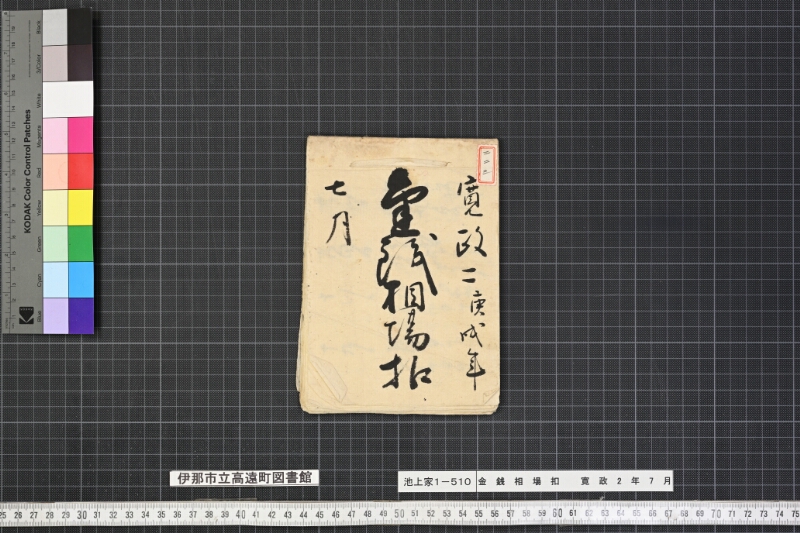 寛政二庚戌年
金銭相場扣
七月
伊那市立高遠町図書館
池上家1-510 金銭相場扣 寛政2年7月
KODAK Color Control Patches
Black
3/Color
White
Magenta
Red
Yellow
Green
Cyan
Blue
25 26 27 28 29 30 31 32 33 34 35 36 37 38 39 40 41 42 43 44 45 46 47 48 49 50 51 52 53 54 55 56 57 58 59 60 61 62 63 64 65 66 67 68 69 70 71 72 73 74 75